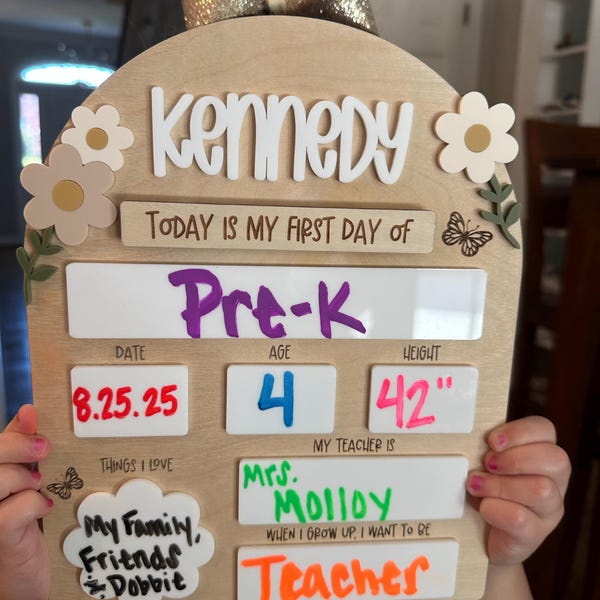 KENNEDY
TODAY IS MY FIRST DAY OF
Pre-K
DATE
AGE
HEIGHT
8.25.25
4
42"
THINGS I LOVE
MY TEACHER IS
My Family,
Friends
& Dobbit
Mrs.
Molloy
WHEN I GROW UP, I WANT TO BE
Teacher